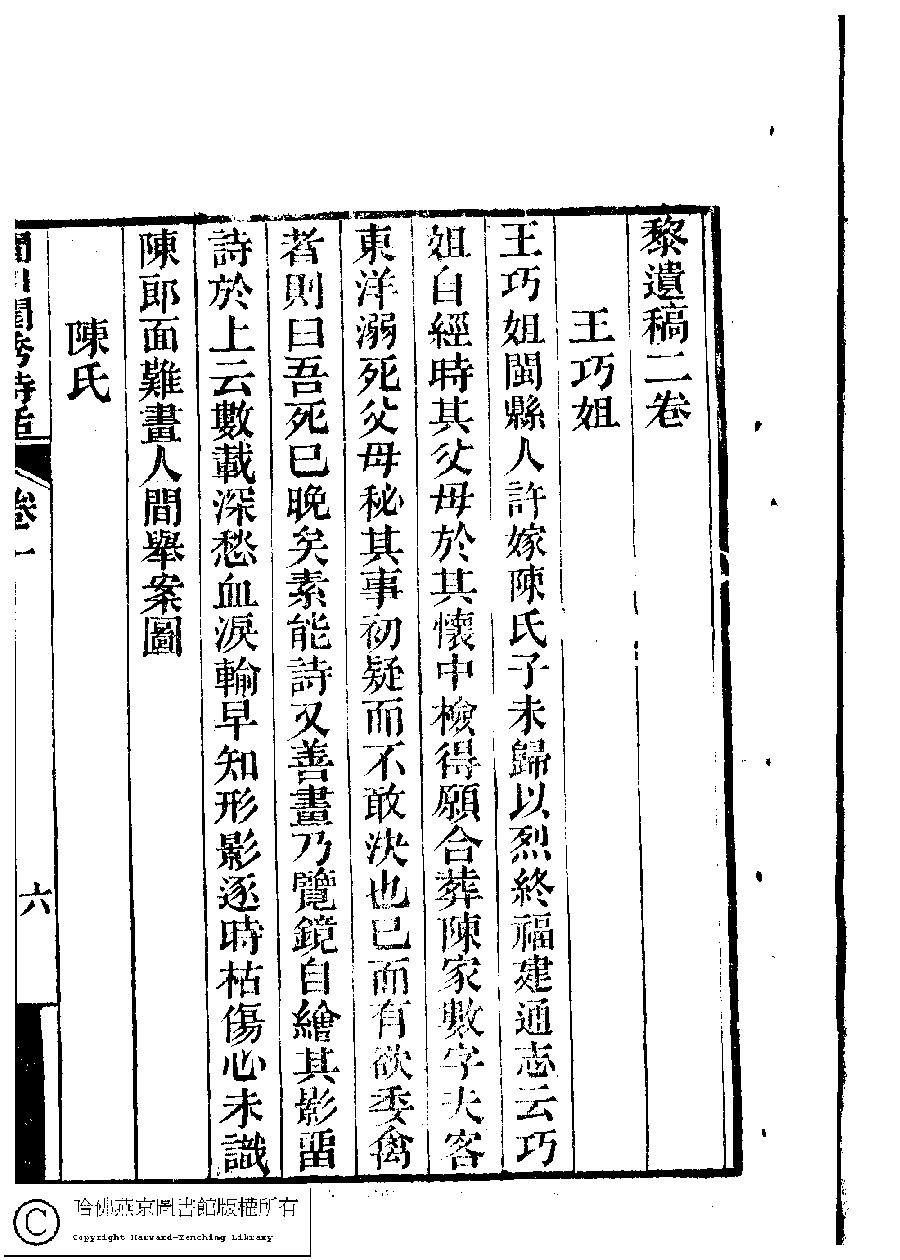 黎遺稿二卷
王巧姐
王巧姐閩縣人許嫁陳氏子未歸以烈終福建通志云巧
姐自經時其父母於其懷中檢得願合葬陳家數字夫客
東洋溺死父母秘其事初疑而不敢決也已而有欲委禽
者則曰吾死已晚矣素能詩又善畫乃覽鏡自繪其影畱
詩於上云數載深愁血淚輸早知形影逐時枯傷心未識
陳郎面難畫人間舉案圖
陳氏
閨秀詩話
卷一
六
哈佛燕京圖書館版權所有
Copyright Harvard-Yenching Library